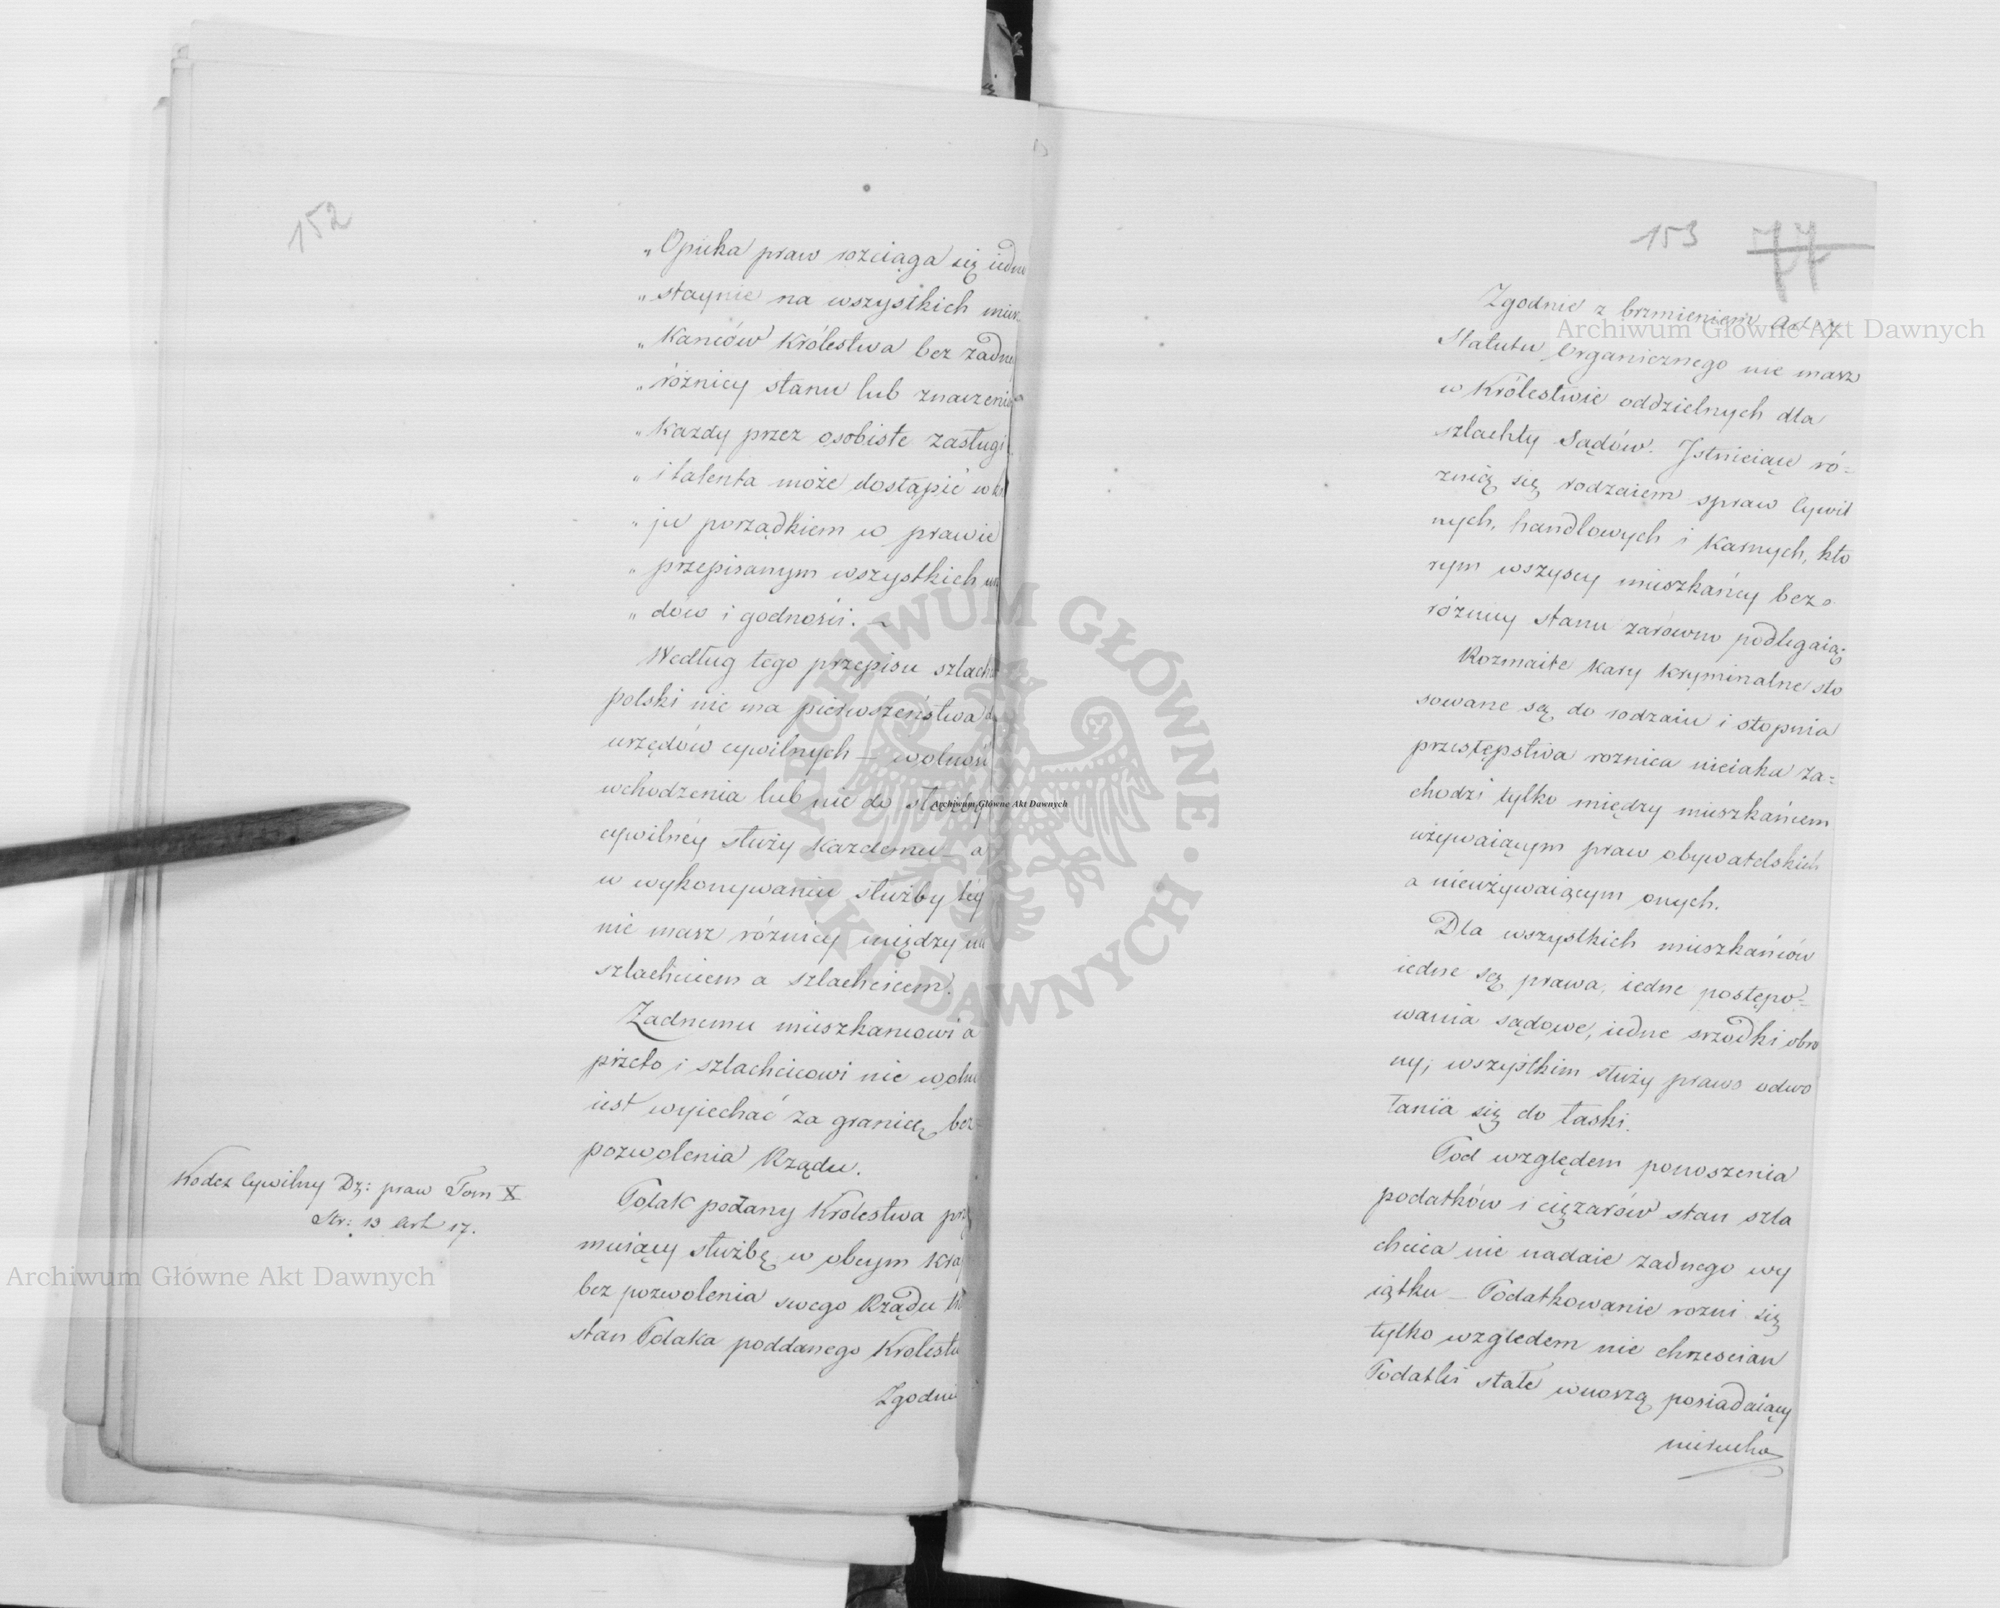 152
„Opieka praw rozciąga się iedno
„staynie na wszystkich miesz-
„kańców Królestwa bez żadney
„różnicy stanu lub znaczenia
„każdy przez osobiste zasługi
„i talenta może dostąpić w kra
„ju porządkiem w prawie
„przepisanym wszystkich urzę
„dów i godności. –
Według tego przepisu szlachcic
polski nie ma pierwszeństwa do
urzędów cywilnych – wolność
wchodzenia lub nie do służby
cywilnéy służy każdemu – a
w wykonywaniu służby téy
nie masz różnicy między nie
szlachcicem a szlachcicem.
Żadnemu mieszkańcowi a
przeto i szlachcicowi nie wolno
iest wyjechać za granicę bez-
pozwolenia Rządu.
Kodex Cywilny Dz: praw Tom X
Str: 13 Art 17.
Polak podany Królestwa przy
muiący służbę w obcym kraju
bez pozwolenia swego Rządu traci
stan Polaka poddanego Królestwa
Zgodnie
153 77
Zgodnie z brzmieniem Art: 7
Statutu Organicznego nie masz
w Królestwie oddzielnych dla
szlachty Sądów. Istnieiące ró-
żnią się rodzaiem spraw Cywil
nych, handlowych i Karnych, któ
rym wszyscy mieszkańcy bez
różnicy stanu zarówno podlegaią.
Rozmaite kary kryminalne sto
sowane są do rodzaiu i stopnia
przestępstwa roznica nieiaka za-
chodzi tylko między mieszkańcem
używaiącym praw obywatelskich
a nieużywaiącym onych.
Dla wszystkich mieszkańców
iedne są prawa, iedne postępo-
wania sądowe, iedne srzodki obro
ny; wszystkim służy prawo odwo
łania się do łaski.
Pod względem ponoszenia
podatków i ciężarów stan szla
chcica nie nadaie żadnego wy
iątku – Podatkowanie rozni się
tylko względem nie chrześcian
Podatki stałe wnoszą posiadaiący
nierucho
Archiwum Główne Akt Dawnych
Archiwum Główne Akt Dawnych
Archiwum Główne Akt Dawnych
ARCHIWUM GŁÓWNE · AKT DAWNYCH ·